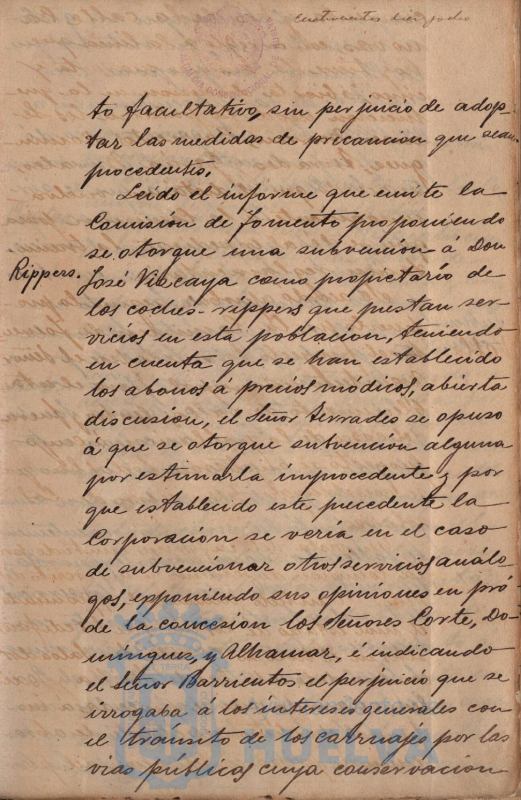 cuatrocientos diez y ocho
to facultativo, sin perjuicio de adop-
tar las medidas de precaucion que sean
procedentes.
Leído el informe que emite la
Comisión de Fomento proponiendo
se otorgue una subvención á Don
Rippers.
José Viscaya como propietario de
los coches-rippers que prestan ser-
vicios en esta poblacion, teniendo
en cuenta que se han establecido
los abonos á precios módicos, abierta
discusion, el Señor Terrades se opuso
á que se otorgue subvención alguna
por estimarla improcedente y por
que establecido este precedente la
Corporación se vería en el caso
de subvencionar otros servicios análo-
gos, exponiendo sus opiniones en pró
de la concesion los Señores Corte, Do-
minguez, y Alhamar, é indicando
el Señor Barrientos el perjuicio que se
irrogaba á los intereses generales con
el tránsito de los carruajes por las
vias públicas cuya conservacion
HUELVA